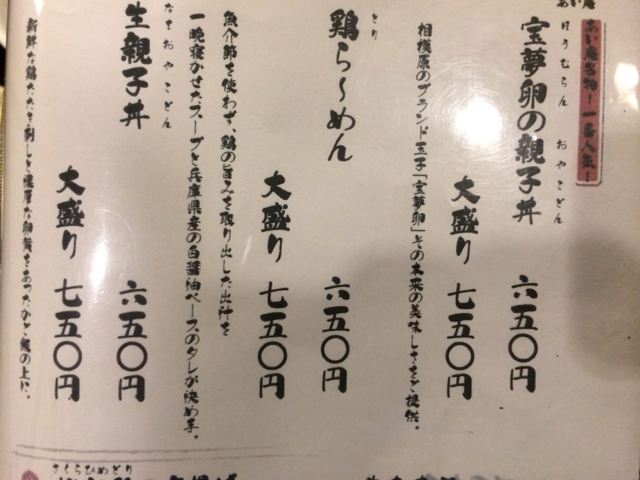 あい庵名物！一番人気！
ほうむらん おやこどん
宝夢卵の親子丼 六五〇円
大盛り 七五〇円
相模原のブランド玉子「宝夢卵」その本来の美味しさをご提供。
とり
鶏ら〜めん 六五〇円
大盛り 七五〇円
魚介節を使わず、鶏の旨みを取り出した出汁を
一晩寝かせたスープと兵庫県産の白醤油ベースのタレが決め手。
なまおやこどん
生親子丼 六五〇円
大盛り 七五〇円
新鮮な鶏たたき刺しと濃厚な卵黄をあったかご飯の上に。
さくらひめどり